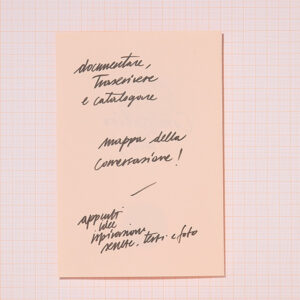 documentare,
trascrivere
e catalogare
mappa della
conversazione!
appunti
idee
ispirazione
scritte, testi e foto